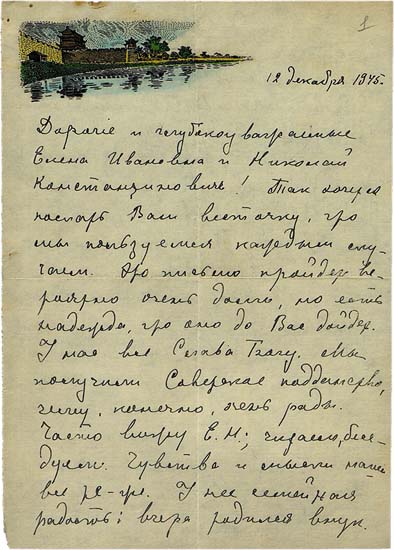 1
12 декабря 1945.
Дорогие и глубокоуважаемые
Елена Ивановна и Николай
Константинович! Так хочется
послать Вам весточку, что
мы пользуемся каждым слу-
чаем. Это письмо пройдет ве-
роятно очень долго, но есть
надежда, что оно до Вас дойдет.
У нас все Слава Богу. Мы
получили Советское подданство,
чему, конечно, очень рады.
Часто вижу Е. Н.; читаем, бесе-
дуем. Чувства и мысли наши
все те-же. У нее семейная
радость: вчера родился внук.